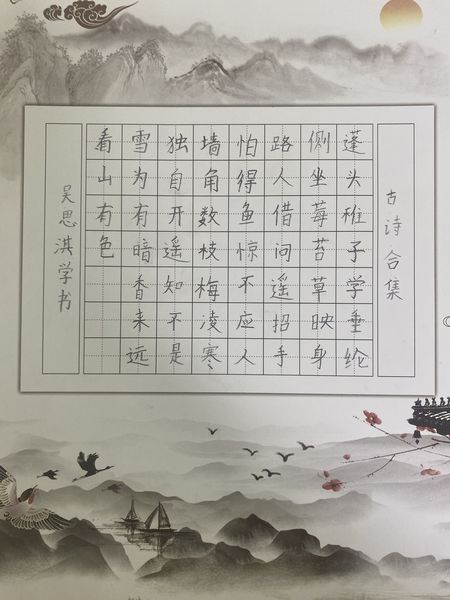 古诗合集
蓬头稚子学垂纶
侧坐莓苔草映身
路人借问遥招手
怕得鱼惊不应人
墙角数枝梅凌寒
独自开遥知不是
雪为有暗香来远
看山有色
吴思淇学书